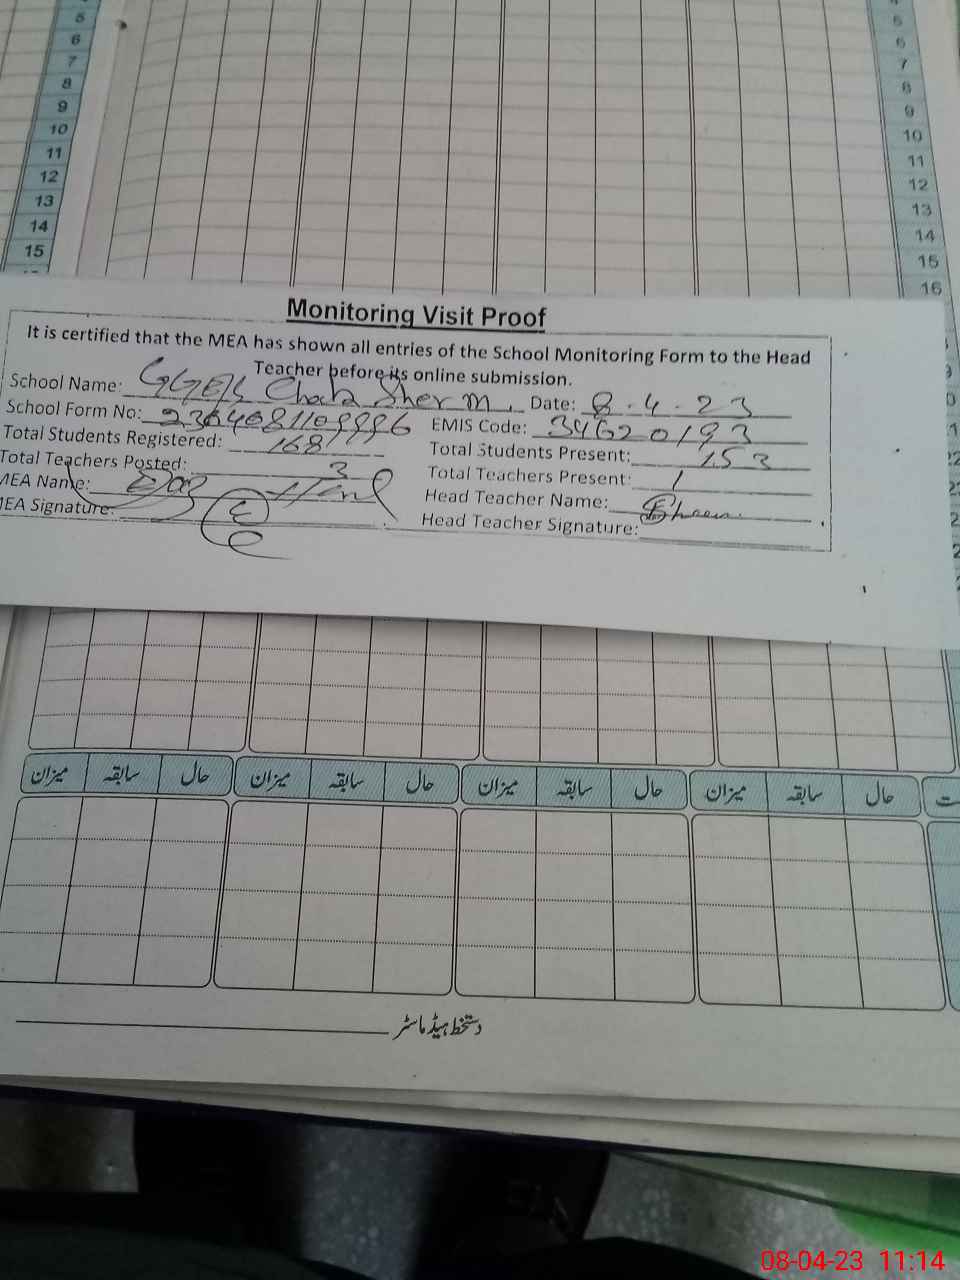 5
6
7
8
9
10
11
12
13
14
15
5
6
7
8
9
10
11
12
13
14
15
16
Monitoring Visit Proof
It is certified that the MEA has shown all entries of the School Monitoring Form to the Head
Teacher before its online submission.
School Name: GGES Chak Sher M. Date: 8-4-23
School Form No: EMIS Code: 34620193
Total Students Registered: 168 Total Students Present: 153
Total Teachers Posted: 3 Total Teachers Present: 1
MEA Name: Head Teacher Name:
MEA Signature: Head Teacher Signature:
حال سابقہ میزان حال سابقہ میزان حال سابقہ میزان حال سابقہ میزان
دستخط ہیڈ ماسٹر
08-04-23 11:14